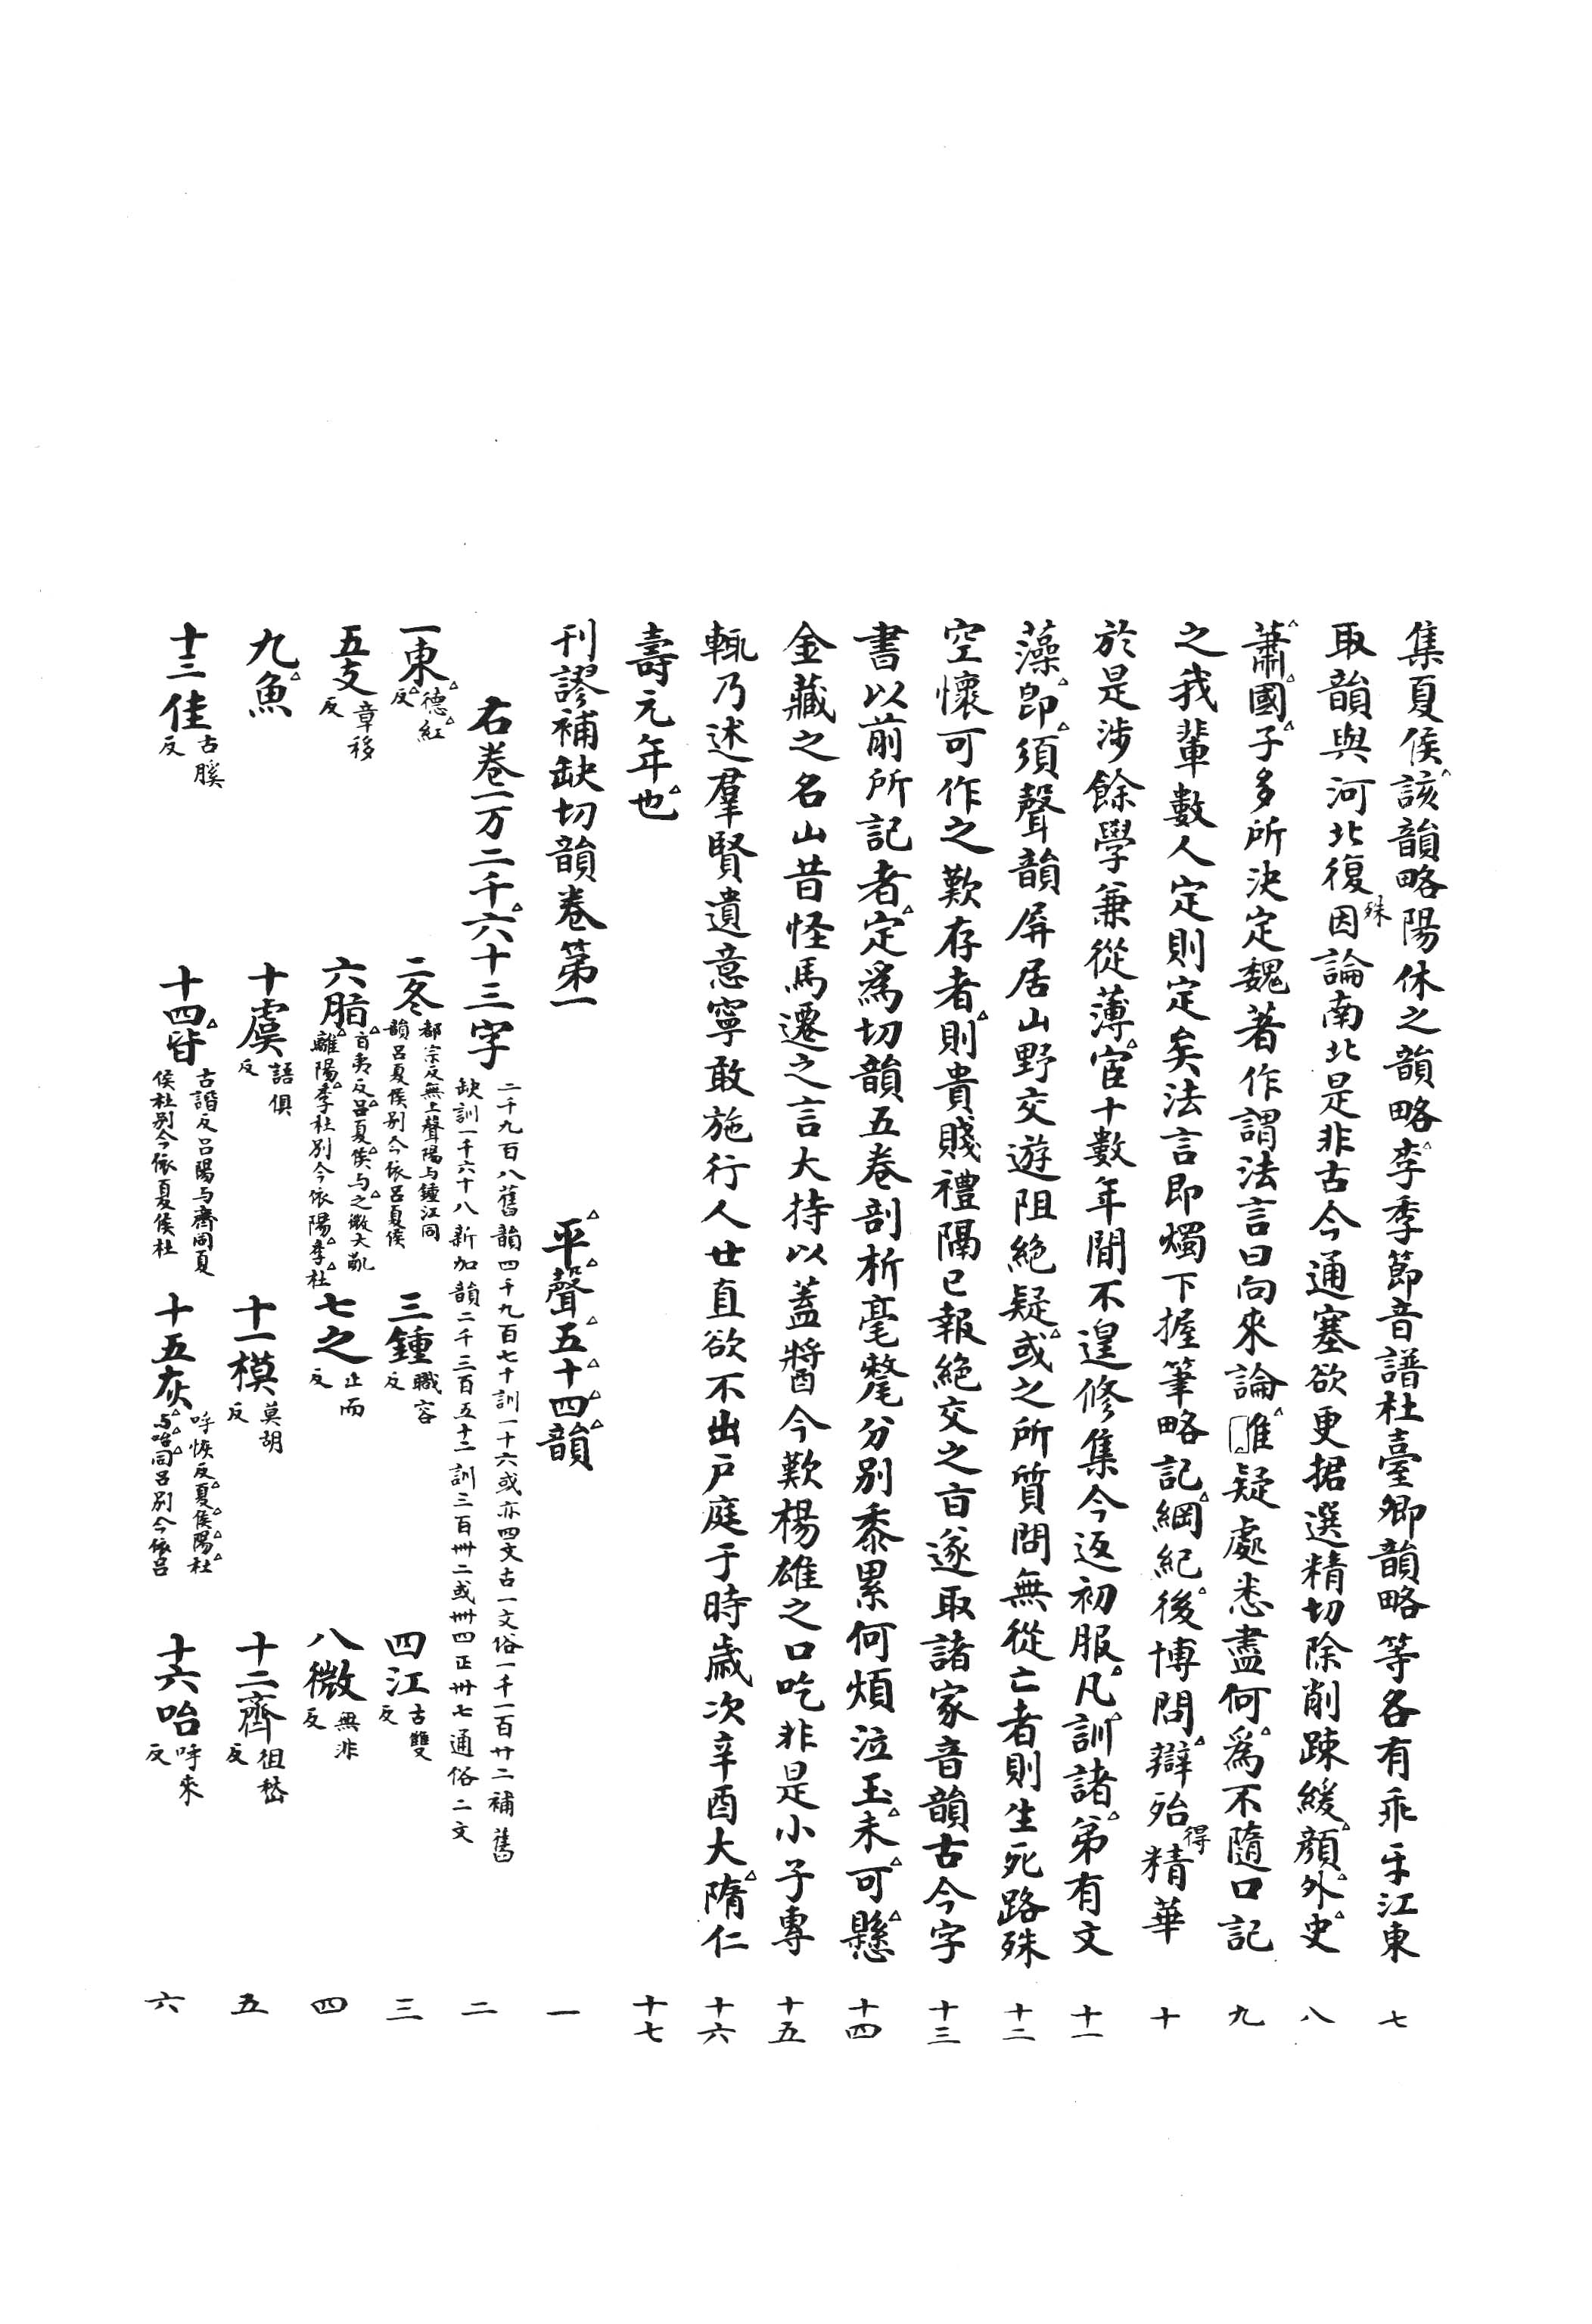 集夏侯該韻略陽休之韻略李季節音譜杜臺卿韻略等各有乖乎江東 七
取韻與河北復殊因論南北是非古今通塞欲更捃選精切除削踈緩顏外史 八
蕭國子多所決定魏著作謂法言曰向來論難疑處悉盡何為不隨口記 九
之我輩數人定則定矣法言即燭下握筆略記綱紀後博問辯殆得精華 十
於是涉餘學兼從薄宦十數年間不遑修集今返初服凡訓諸弟有文 十一
藻即須聲韻屏居山野交遊阻絕疑或之所質問無從亡者則生死路殊 十二
空懷可作之歎存者則貴賤禮隔已報絕交之旨遂取諸家音韻古今字 十三
書以前所記者定為切韻五卷剖析毫氂分別黍累何煩泣玉未可懸 十四
金藏之名山昔怪馬遷之言大持以蓋醬今歎楊雄之口吃非是小子專 十五
輒乃述羣賢遺意寧敢施行人廿直欲不出戶庭于時歲次辛酉大隋仁 十六
壽元年也 十七
刊謬補缺切韻卷第一 平聲五十四韻 一
右卷一万二千六十三字 二千九百八舊韻四千九百七十訓一十六或亦四文古一文俗一千一百廿二補舊 缺訓一千六十八新加韻二千三百五十二訓三百卌二或卌四正卌七通俗二文 二
一東 德紅反 二冬 都宗反無上聲陽与鍾江同韻呂夏侯別今依呂夏侯 三鍾 職容反 四江 古雙反 三
五支 章移反 六脂 旨夷反呂夏侯与之微大亂離陽李杜別今依陽李杜 七之 止而反 八微 無非反 四
九魚 十虞 語俱反 十一模 莫胡反 十二齊 徂嵇反 五
十三佳 古膎反 十四皆 古諧反呂陽与齊同夏侯杜別今依夏侯杜 十五灰 呼恢反夏侯陽杜与咍同呂別今依呂 十六咍 呼來反 六